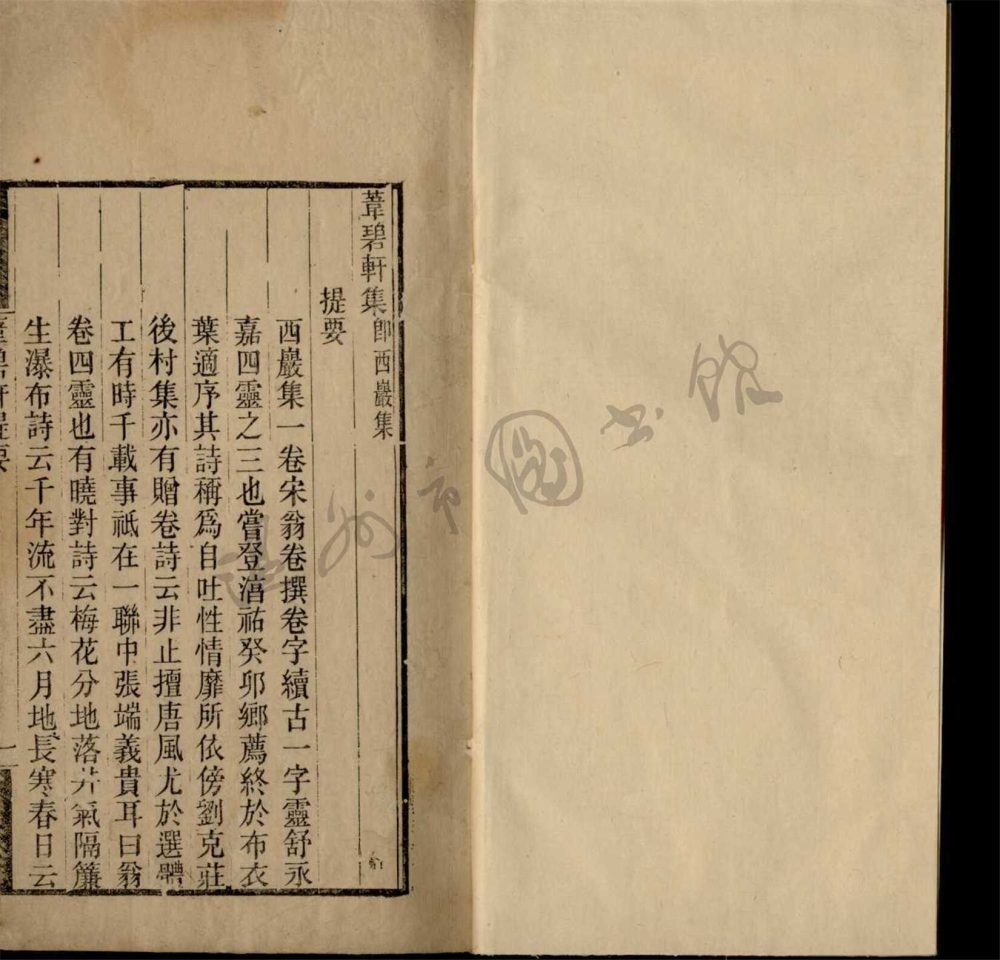 葦碧軒集卽西巖集
提要
西巖集一卷宋翁卷撰卷字續古一字靈舒永
嘉四靈之三也嘗登淳祐癸卯鄉薦終於布衣
葉適序其詩稱爲自吐性情靡所依傍劉克莊
後村集亦有贈卷詩云非止擅唐風尤於選體
工有時千載事祇在一聯中張端義貴耳曰翁
卷四靈也有曉對詩云梅花分地落井氣隔簾
生瀑布詩云千年流不盡六月地長寒春日云
葦碧軒提要
一
市圖書館